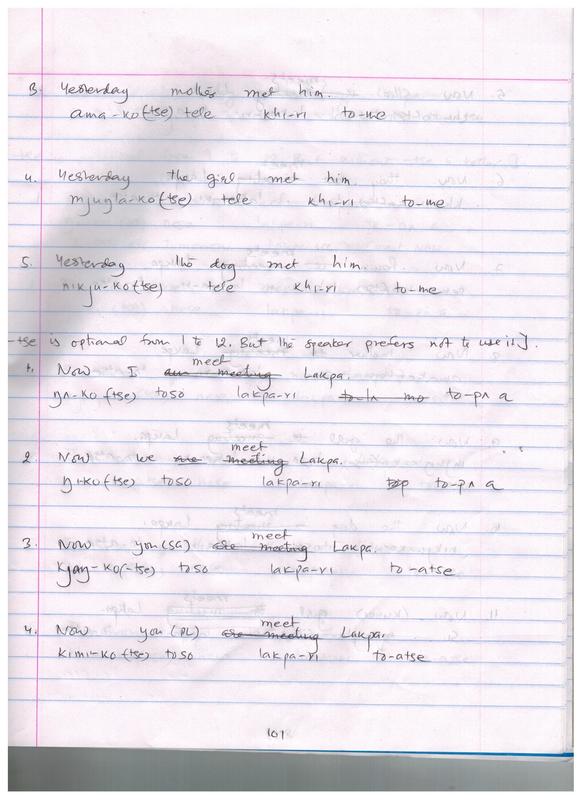 3. Yesterday mother met him.
ama-ko (-tse) tele khi-ri to-me
4. Yesterday the girl met him.
mjugla-ko (-tse) tele khi-ri to-me
5. Yesterday the dog met him.
nikju-ko (-tse) tele khi-ri to-me
-tse is optional from 1 to 12. But the speaker prefers not to use it].
1. Now I am meeting meet Lakpa.
ŋʌ-ko (-tse) toso lakpa-ri to-lʌ mo to-pʌ a
2. Now we are meeting meet Lakpa.
ŋi-ko (-tse) toso lakpa-ri to-pʌ a
3. Now you (SG) are meeting meet Lakpa.
kjaŋ-ko (-tse) toso lakpa-ri to-atse
4. Now you (PL) are meeting meet Lakpa.
kimi-ko (-tse) toso lakpa-ri to-atse
101